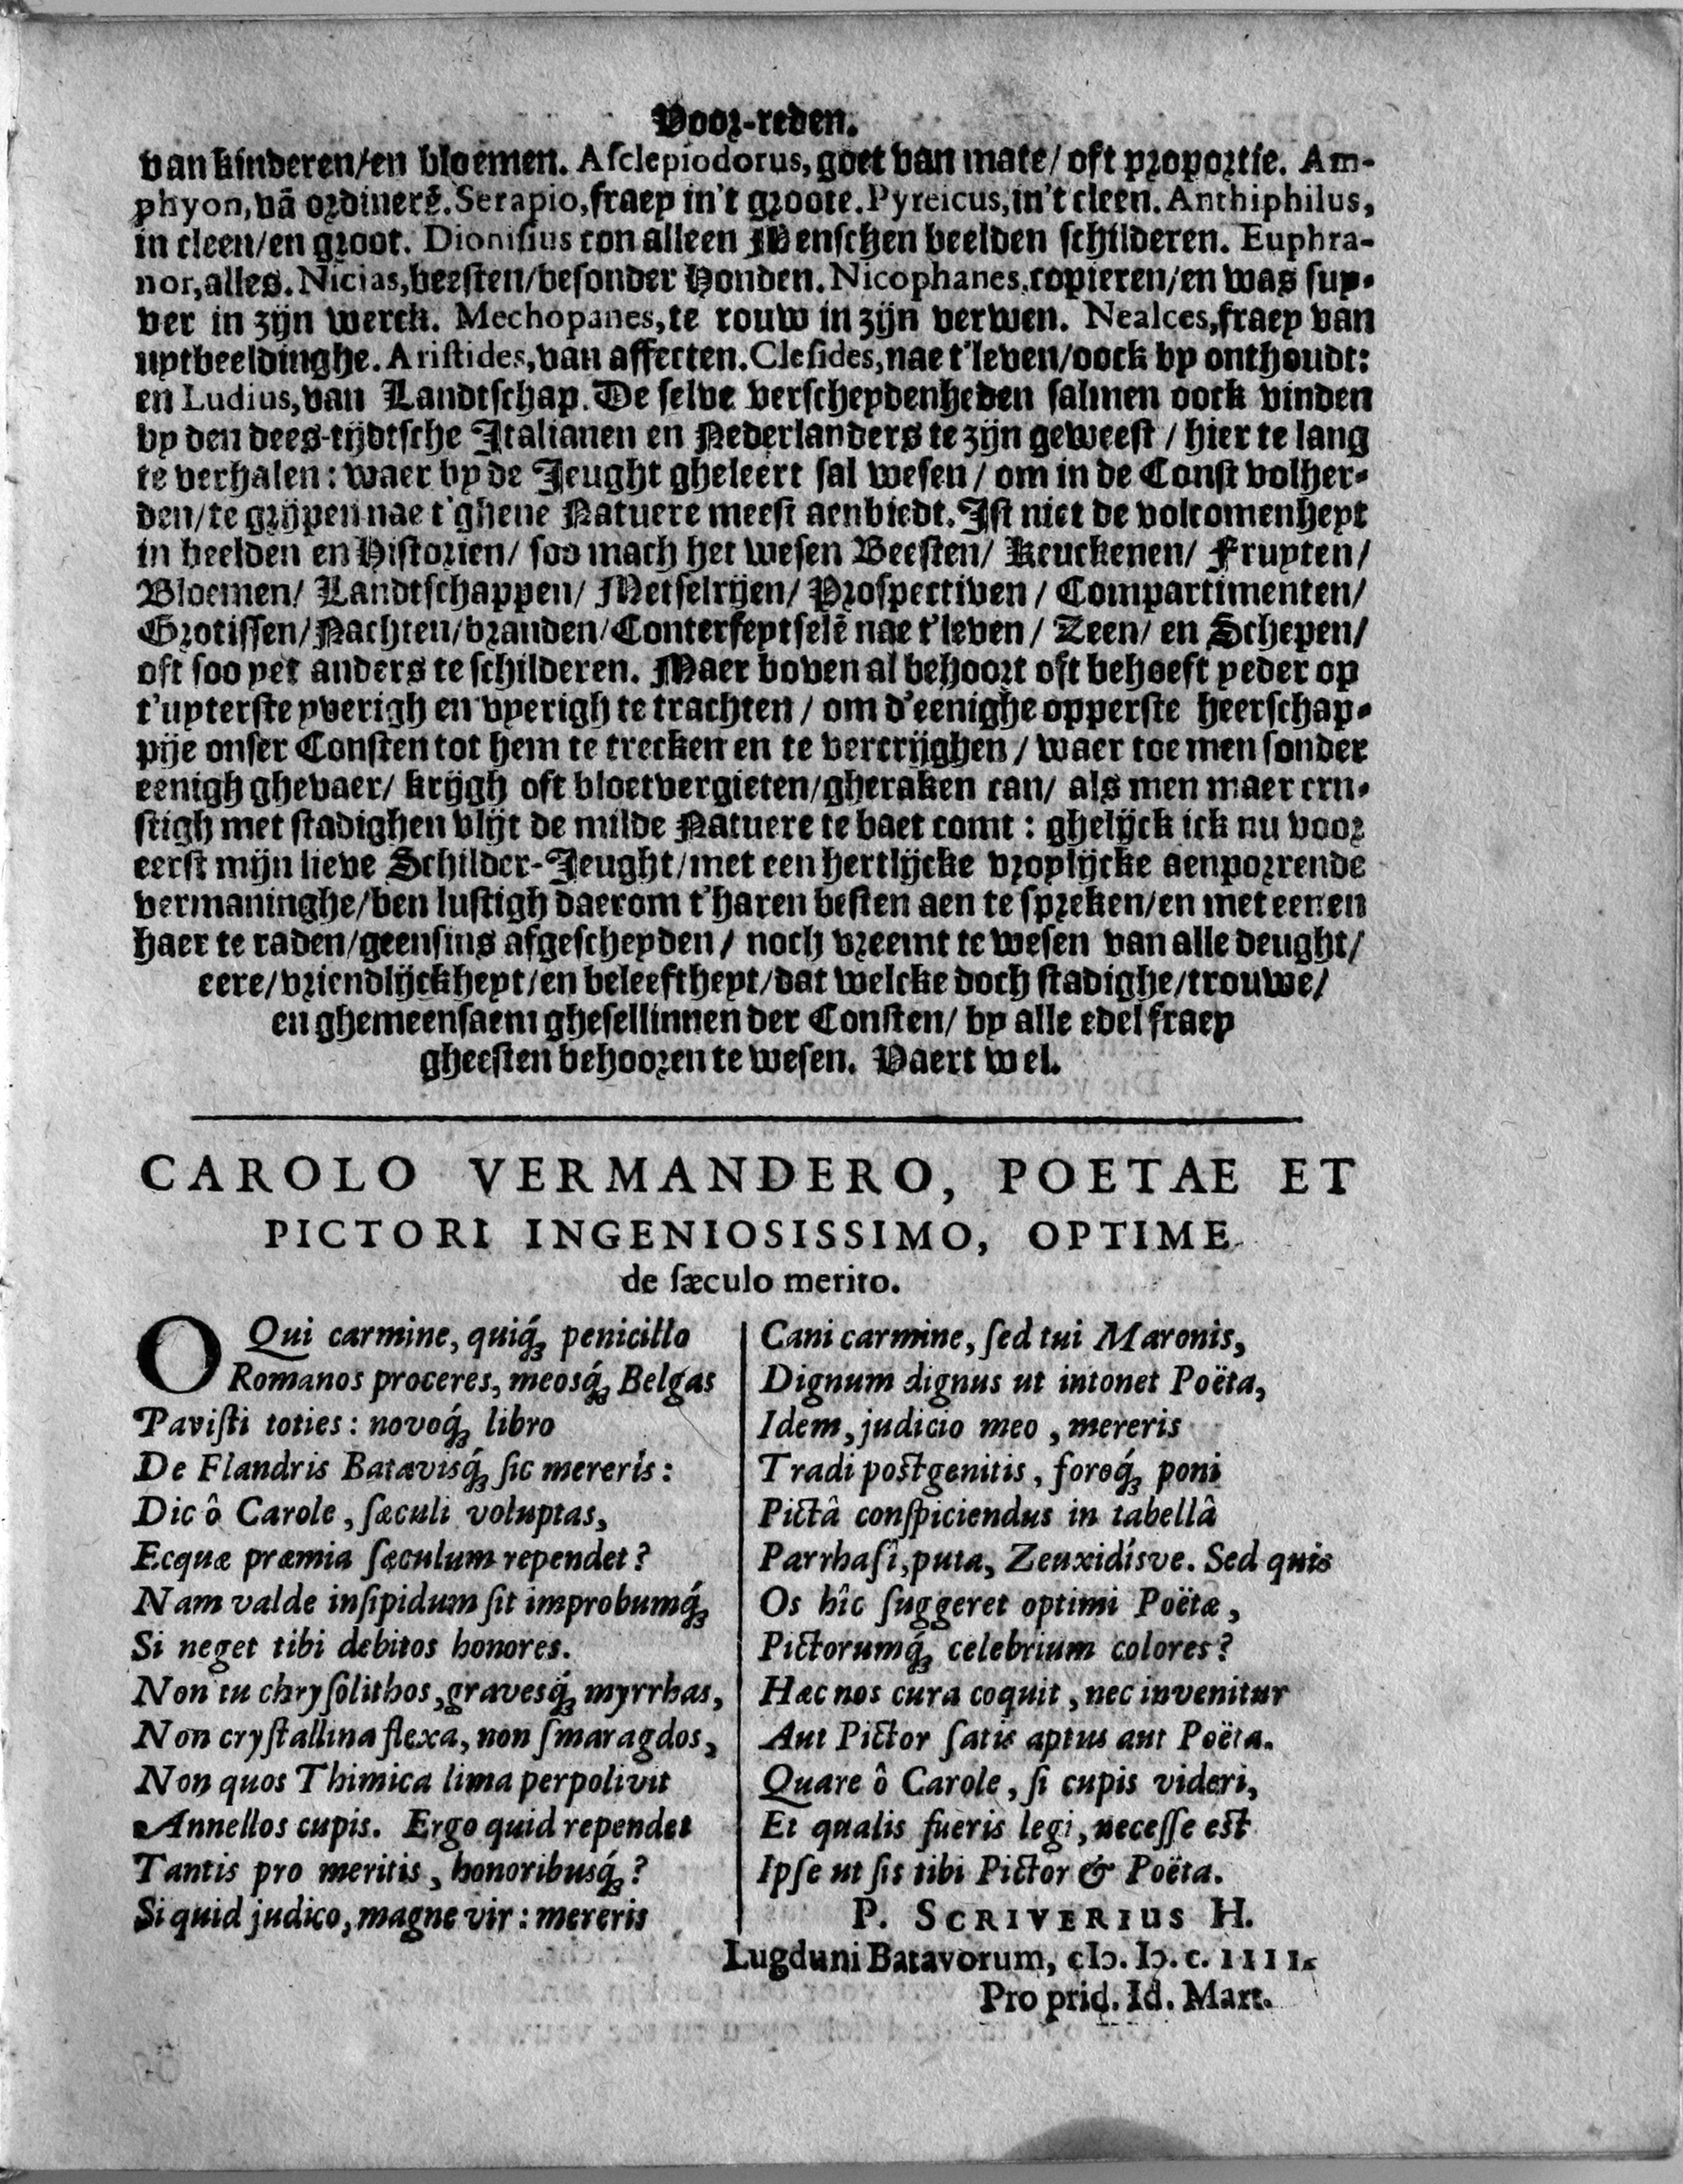 Voor-reden.
van kinderen/en bloemen. Asclepiodorus, goet van mate/ oft proportie. Am-
phyon, vā ordinerē. Serapio, fraey in't groote. Pyreicus, in't cleen. Anthiphilus,
in cleen/en groot. Dionisius con alleen Menschen beelden schilderen. Euphra-
nor, alles. Nicias, beesten/besonder Honden. Nicophanes, copieren/en was suy-
ver in zijn werck. Mechopanes, te rouw in zijn verwen. Nealces, fraey van
uytbeeldinghe. Aristides, van affecten. Clesides, nae t'leven/oock by onthoudt:
en Ludius, van Landtschap. De selve verscheydenheden salmen oock vinden
by den dees-tijdtsche Italianen en Nederlanders te zijn geweest / hier te lang
te verhalen: waer by de Jeught gheleert sal wesen / om in de Const volher-
den/te grijpen nae t'ghene Natuere meest aenbiedt. Ist niet de volcomenheyt
in beelden en Historien/ soo mach het wesen Beesten/ Keuckenen/ Fruyten/
Bloemen/ Landtschappen/ Metselrijen/ Prospectiven / Compartimenten/
Grotissen/Nachten/branden/Conterfeytselē nae t'leven / Zeen/ en Schepen/
oft soo yet anders te schilderen. Maer boven al behoort oft behoeft yeder op
t'uyterste yverigh en vyerigh te trachten / om d'eenighe opperste heerschap-
pije onser Consten tot hem te trecken en te vercrijghen / waer toe men sonder
eenigh ghevaer/ krijgh oft bloetvergieten/gheraken can/ als men maer ern-
stigh met stadighen vlijt de milde Natuere te baet comt : ghelijck ick nu voor
eerst mijn lieve Schilder-Jeught/met een hertlijcke vroylijcke aenporrende
vermaninghe/ben lustigh daerom t'haren besten aen te spreken/en met eenen
haer te raden/geensins afgescheyden/ noch vreemt te wesen van alle deught/
eere/vriendlijckheyt/en beleeftheyt/dat welcke doch stadighe/trouwe/
en ghemeensaem ghesellinnen der Consten/ by alle edel fraey
gheesten behooren te wesen. Vaert wel.
CAROLO VERMANDERO, POETAE ET
PICTORI INGENIOSISSIMO, OPTIME
de sæculo merito.
O Qui carmine, quiq́ꝫ penicillo
Romanos proceres, meosq́ꝫ Belgas
Pavisti toties: novoq́ꝫ libro
De Flandris Batavisq́ꝫ sic mereris:
Dic ô Carole, sæculi voluptas,
Ecquæ præmia sæculum rependet?
Nam valde insipidum sit improbumq́ꝫ
Si neget tibi debitos honores.
Non tu chrysolithos, gravesq́ꝫ myrrhas,
Non crystallina flexa, non smaragdos,
Non quos Thimica lima perpolivit
Annellos cupis. Ergo quid rependet
Tantis pro meritis, honoribusq́ꝫ?
Si quid judico, magne vir: mereris
Cani carmine, sed tui Maronis,
Dignum dignus ut intonet Poëta,
Idem, judicio meo, mereris
Tradi postgenitis, foroq́ꝫ poni
Pictâ conspiciendus in tabellâ
Parrhasî, puta, Zeuxidísve. Sed quis
Os hîc suggeret optimi Poëtæ,
Pictorumq́ꝫ celebrium colores?
Hæc nos cura coquit, nec invenitur
Aut Pictor satis aptus aut Poëta.
Quare ô Carole, si cupis videri,
Et qualis fueris legi, necesse est
Ipse ut sis tibi Pictor & Poëta.
P. SCRIVERIUS H.
Lugduni Batavorum, cIↄ. Iↄ. c. IIII.
Pro prid. Id. Mart.